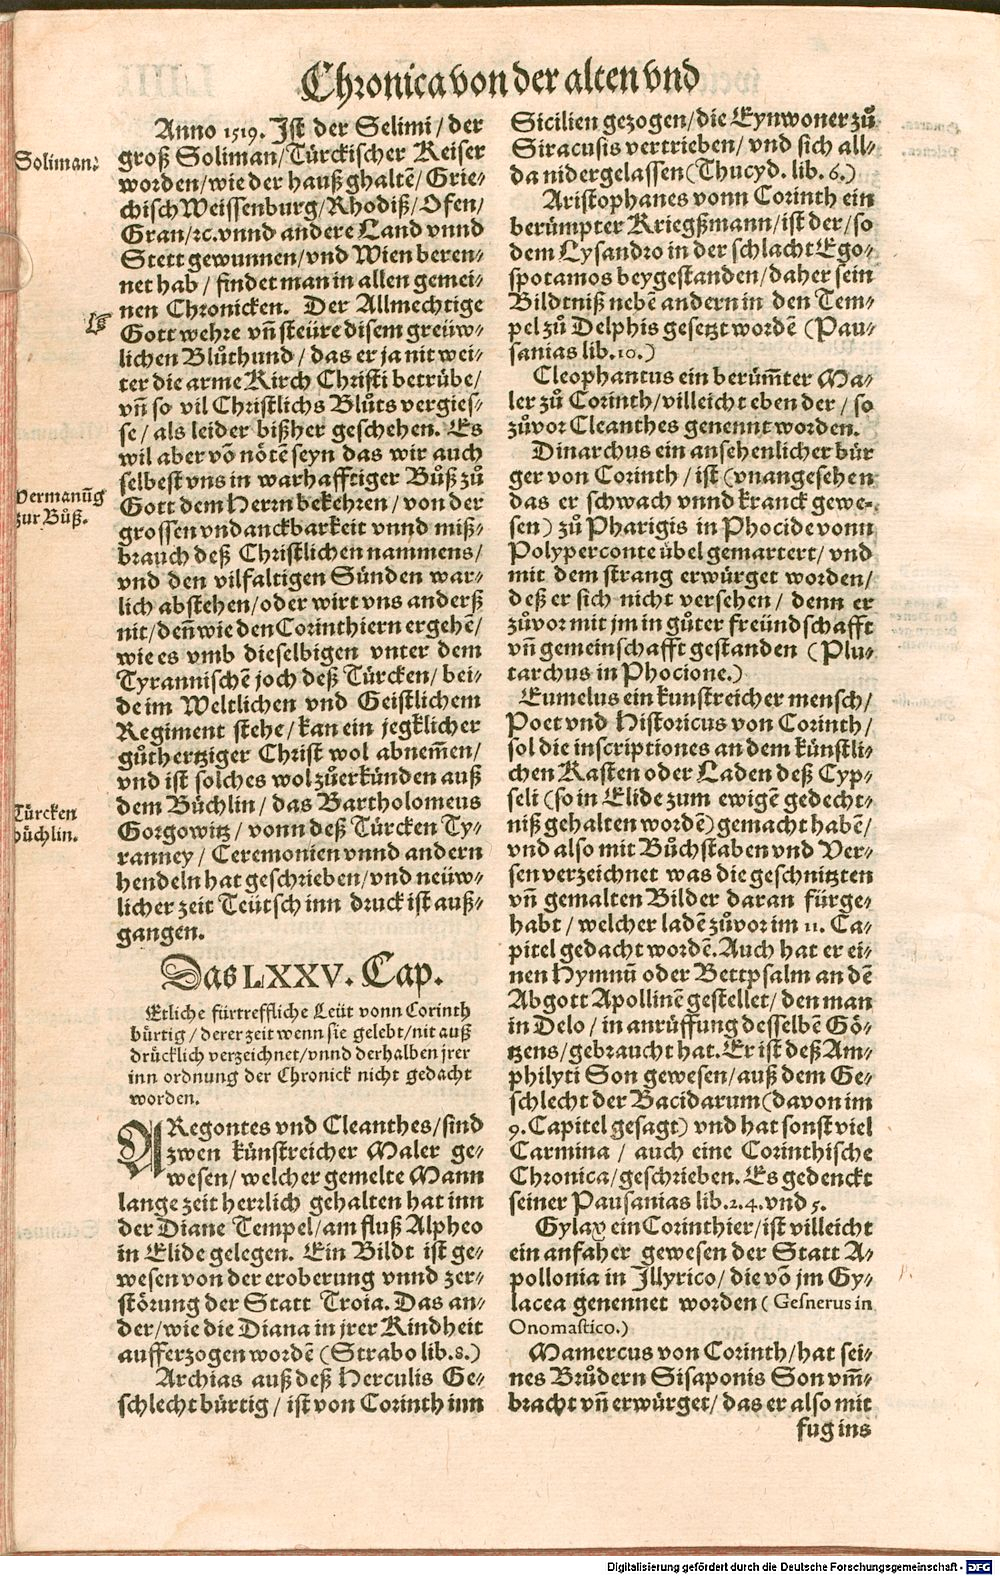 Chronica von der alten vnd
Anno 1519. Ist der Selimi / der
groß Soliman / Türckischer Keiser
worden / wie der hauß ghaltē / Grie⸗
chisch Weissenburg / Rhodiß / Ofen /
Gran / ꝛc. vnnd andere Land vnnd
Stett gewunnen / vnd Wien beren⸗
net hab / findet man in allen gemei⸗
nen Chronicken. Der Allmechtige
Gott wehre vñ steüre disem greüw⸗
lichen Blůthund / das er ja nit wei⸗
ter die arme Kirch Christi betrübe /
vñ so vil Christlichs Blůts vergies⸗
se / als leider bißher geschehen. Es
wil aber võ nötē seyn das wir auch
selbest vns in warhafftiger Bůß zů
Gott dem Herrn bekehren / von der
grossen vndanckbarkeit vnnd miß⸗
brauch deß Christlichen nammens /
vnd den vilfaltigen Sünden war⸗
lich abstehen / oder wirt vns anderß
nit / deñ wie den Corinthiern ergehē /
wie es vmb dieselbigen vnter dem
Tyrannischē joch deß Türcken / bei⸗
de im Weltlichen vnd Geistlichem
Regiment stehe / kan ein jegklicher
gůthertziger Christ wol abnem̃en /
vnd ist solches wol zůerkünden auß
dem Büchlin / das Bartholomeus
Gorgowitz / vonn deß Türcken Ty⸗
ranney / Ceremonien vnnd andern
hendeln hat geschrieben / vnd neüw⸗
licher zeit Teütsch inn druck ist auß⸗
gangen.
Soliman:
Vermanũg
zur Bůß.
Türcken
büchlin.
Das LXXV. Cap.
Etliche fürtreffliche Leüt vonn Corinth
bürtig / derer zeit wenn sie gelebt / nit auß
drücklich verzeichnet / vnnd derhalben jrer
inn ordnung der Chronick nicht gedacht
worden.
ARegontes vnd Cleanthes / sind
zwen künstreicher Maler ge⸗
wesen / welcher gemelte Mann
lange zeit herrlich gehalten hat inn
der Diane Tempel / am fluß Alpheo
in Elide gelegen. Ein Bildt ist ge⸗
wesen von der eroberung vnnd zer⸗
störung der Statt Troia. Das an⸗
der / wie die Diana in jrer Kindheit
aufferzogen wordē (Strabo lib. 8.)
Archias auß deß Herculis Ge⸗
schlecht bürtig / ist von Corinth inn
Sicilien gezogen / die Eynwoner zů
Siracusis vertrieben / vnd sich all⸗
da nidergelassen (Thucyd. lib. 6.)
Aristophanes vonn Corinth ein
berümpter Kriegßmann / ist der / so
dem Lysandro in der schlacht Ego⸗
spotamos beygestanden / daher sein
Bildtniß nebē andern in den Tem⸗
pel zů Delphis gesetzt wordē (Pau⸗
sanias lib. 10.)
Cleophantus ein berüm̃ter Ma⸗
ler zů Corinth / villeicht eben der / so
zůvor Cleanthes genennt worden.
Dinarchus ein ansehenlicher bür
ger von Corinth / ist (vnangesehen
das er schwach vnnd kranck gewe⸗
sen) zů Pharigis in Phocide vonn
Polyperconte übel gemartert / vnd
mit dem strang erwürget worden /
deß er sich nicht versehen / denn er
zůvor mit jm in gůter freündschafft
vñ gemeinschafft gestanden (Plu⸗
tarchus in Phocione.)
Eumelus ein kunstreicher mensch /
Poet vnd Historicus von Corinth /
sol die inscriptiones an dem künstli⸗
chen Kasten oder Laden deß Cyp⸗
seli (so in Elide zum ewigē gedecht⸗
niß gehalten wordē) gemacht habē /
vnd also mit Bůchstaben vnd Ver⸗
sen verzeichnet was die geschnitzten
vñ gemalten Bilder daran fürge⸗
habt / welcher ladē zůvor im 11. Ca⸗
pitel gedacht wordē. Auch hat er ei⸗
nen Hymnũ oder Bettpsalm an dē
Abgott Apollinē gestellet / den man
in Delo / in anrüffung desselbē Gö⸗
tzens / gebraucht hat. Er ist deß Am⸗
philyti Son gewesen / auß dem Ge⸗
schlecht der Bacidarum (davon im
9. Capitel gesagt) vnd hat sonst viel
Carmina / auch eine Corinthische
Chronica / geschrieben. Es gedenckt
seiner Pausanias lib. 2. 4. vnd 5.
Gylax ein Corinthier / ist villeicht
ein anfaher gewesen der Statt A⸗
pollonia in Jllyrico / die võ jm Gy⸗
lacea genennet worden (Gesnerus in
Onomastico.)
Mamercus von Corinth / hat sei⸗
nes Brůdern Sisaponis Son vm̃⸗
bracht vñ erwürget / das er also mit
fug ins
Digitalisierung gefördert durch die Deutsche Forschungsgemeinschaft - DFG